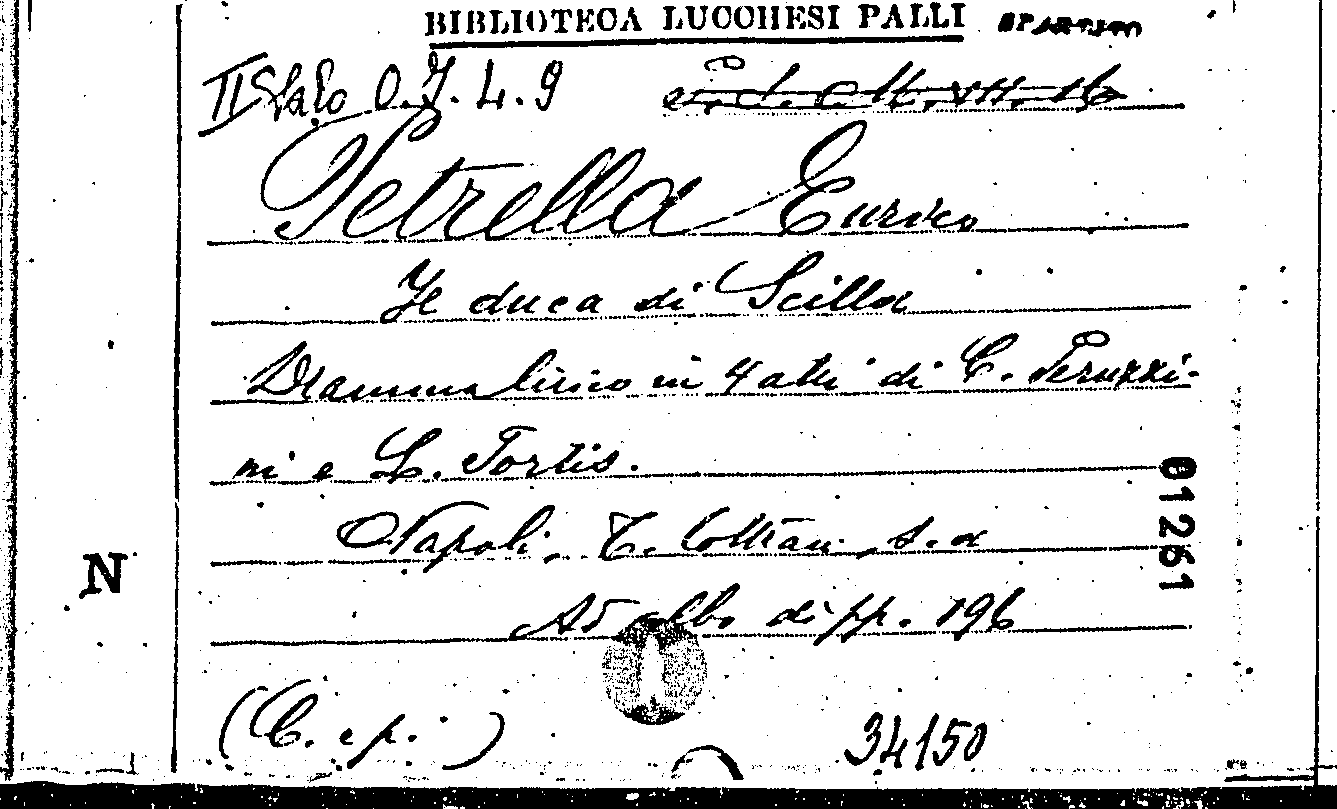 BIBLIOTECA LUCCHESI PALLI SPARTITO
II Sala O.7.4.9
Petrella Enrico
Il duca di Scilla
Dramma lirico in 4 atti di C. Peruzzi-
ni e L. Fortis.
Napoli, T. Cottrau, s.a
Ad albo di pp. 196
(C. e p.) 34150
N
01261